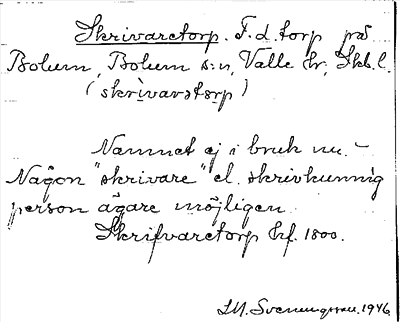 Skrivaretorp. F. d. torp på
Bolum, Bolum s:n, Valle hr, Skb. l.
(skrìvarstorp)
Namnet ej i bruk nu. –
Någon "skrivare" el. skrivkunnig
person ägare möjligen.
Skrifvaretorp Hf. 1800.
Sveningsson. 1946